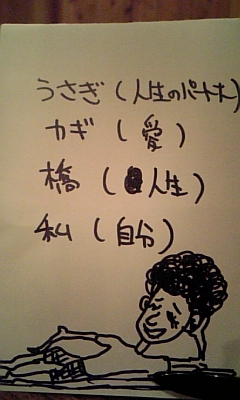 うさぎ（人生のパートナー）
カギ（愛）
橋（人生）
私（自分）